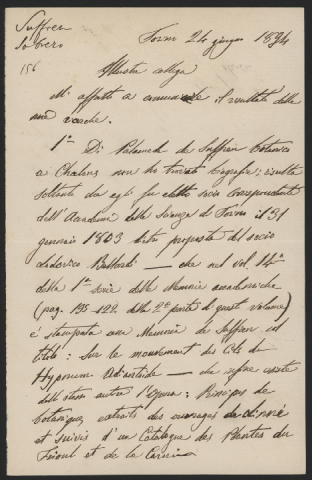 Suffren
Sobrero
156
Torino 24 giugno 1894
Illustre collega
Mi affretto a comunicarle il resultato delle
mie ricerche.
1° Di Palamede de Suffren botanico
a Chalons non ho trovato biografie; risulta
soltanto che egli fu eletto socio corrispondente
dell'Accademia delle Scienze di Torino il 31
gennaio 1803 dietro proposta del socio
Lodovico Bellardi — che nel vol. 14°
della 1ª serie delle Memorie accademiche
(pag. 195-422 della 2ª parte di questo volume)
è stampata una Memoria di Suffren col
titolo: Sur le mouvement des Cils de
Hypnum Adiantoide — che infine esiste
dello stesso autore l'opera: Principes de
botanique, extraits des ouvrages de Linné
et suivis d'un Catalogue des Plantes du
Frioul et de la Carnia